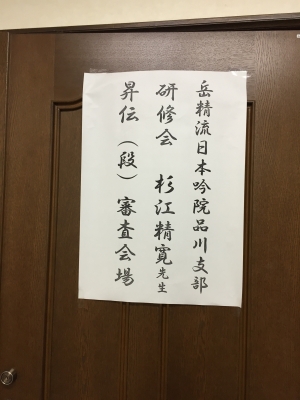 岳精流日本吟院品川支部
研修会 杉江精寛先生
昇伝（段）審査会場